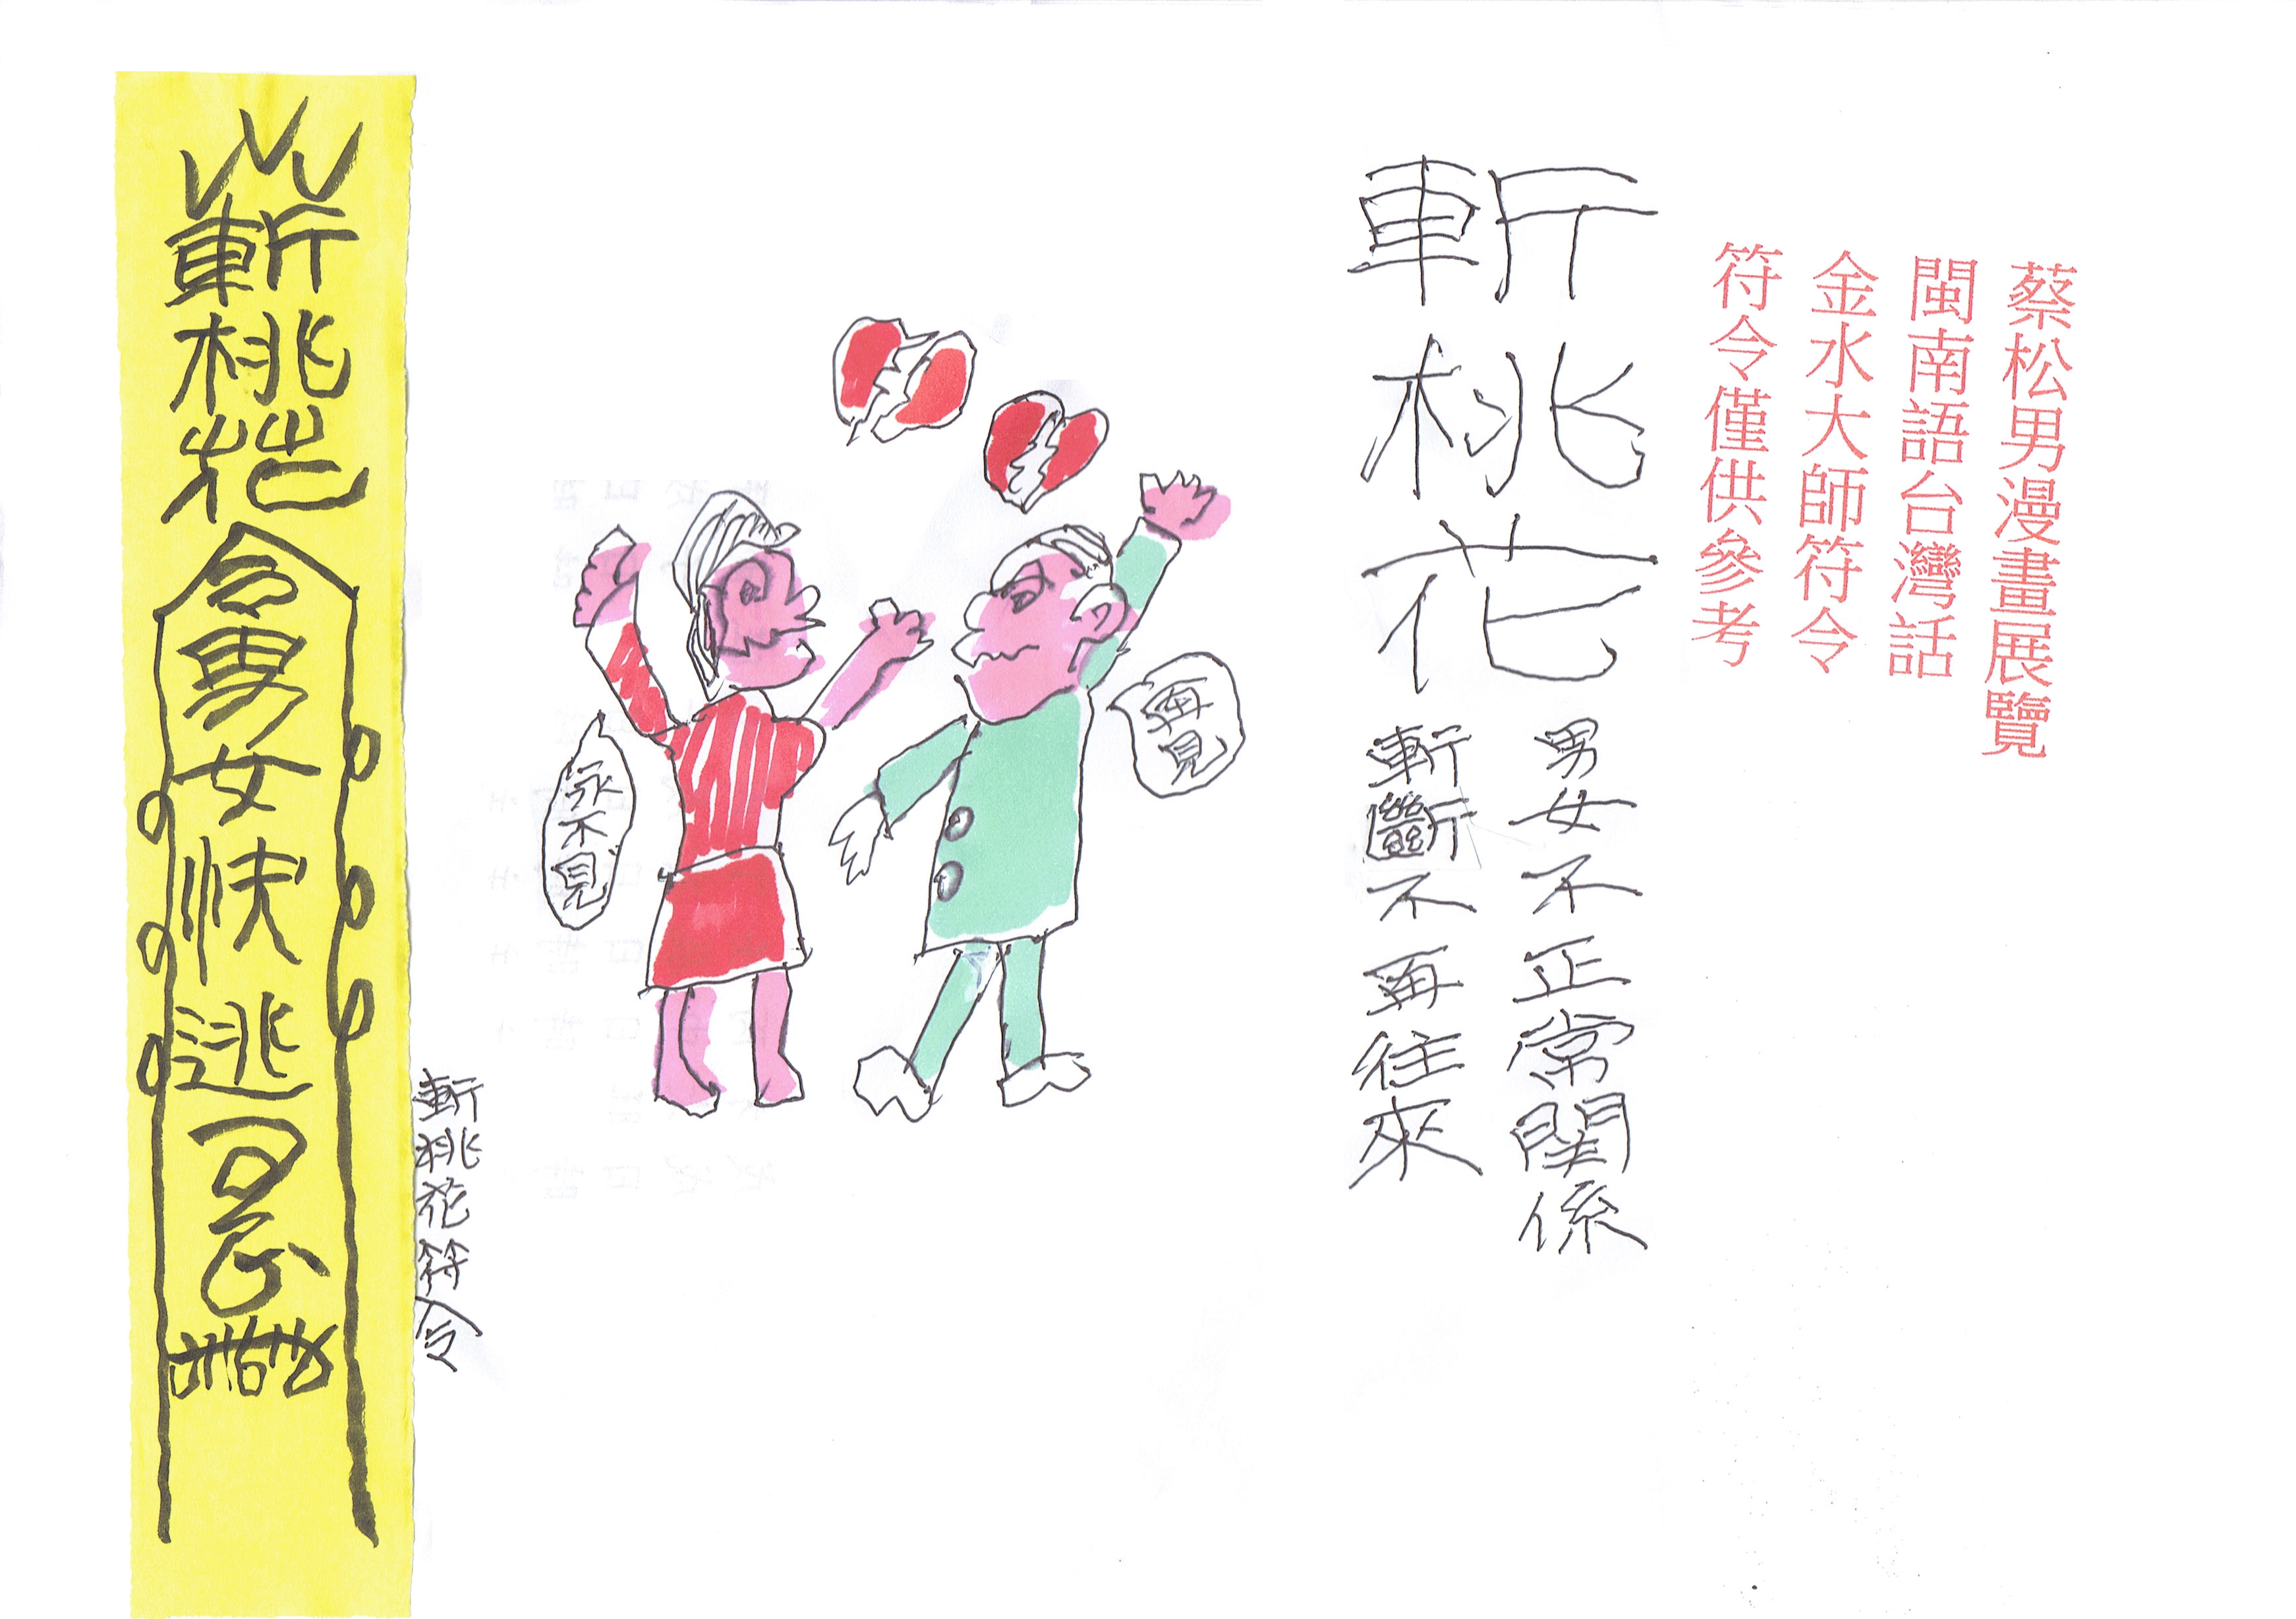 蔡松男漫畫展覽
閩南語台灣話
金水大師符令
符令僅供參考
斬桃花
男女不正常関係
斬斷不再往來
再見
永不見
斬桃花符令
斬桃花
令男女快逃